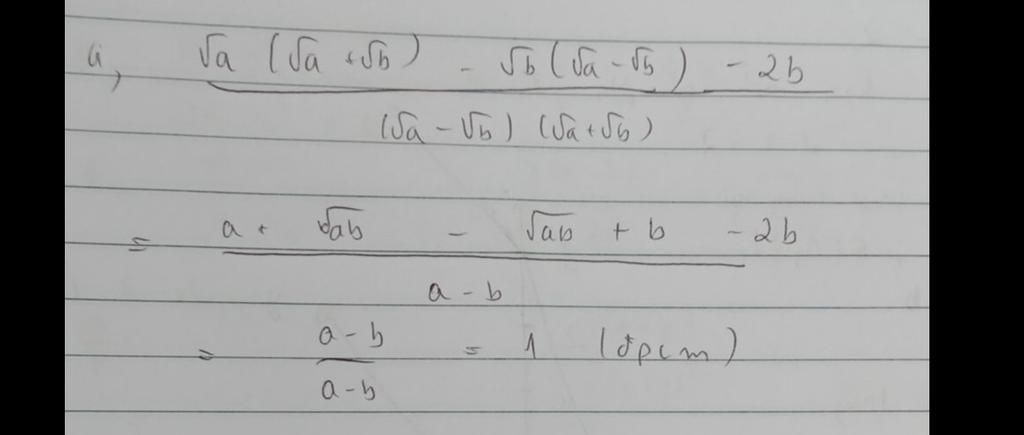 a, √a (√a + √b) - √b (√a - √b) - 2b
(√a - √b) (√a + √b)
= a + √ab - √ab + b - 2b
a - b
= a - b = 1 (đpcm)
a - b